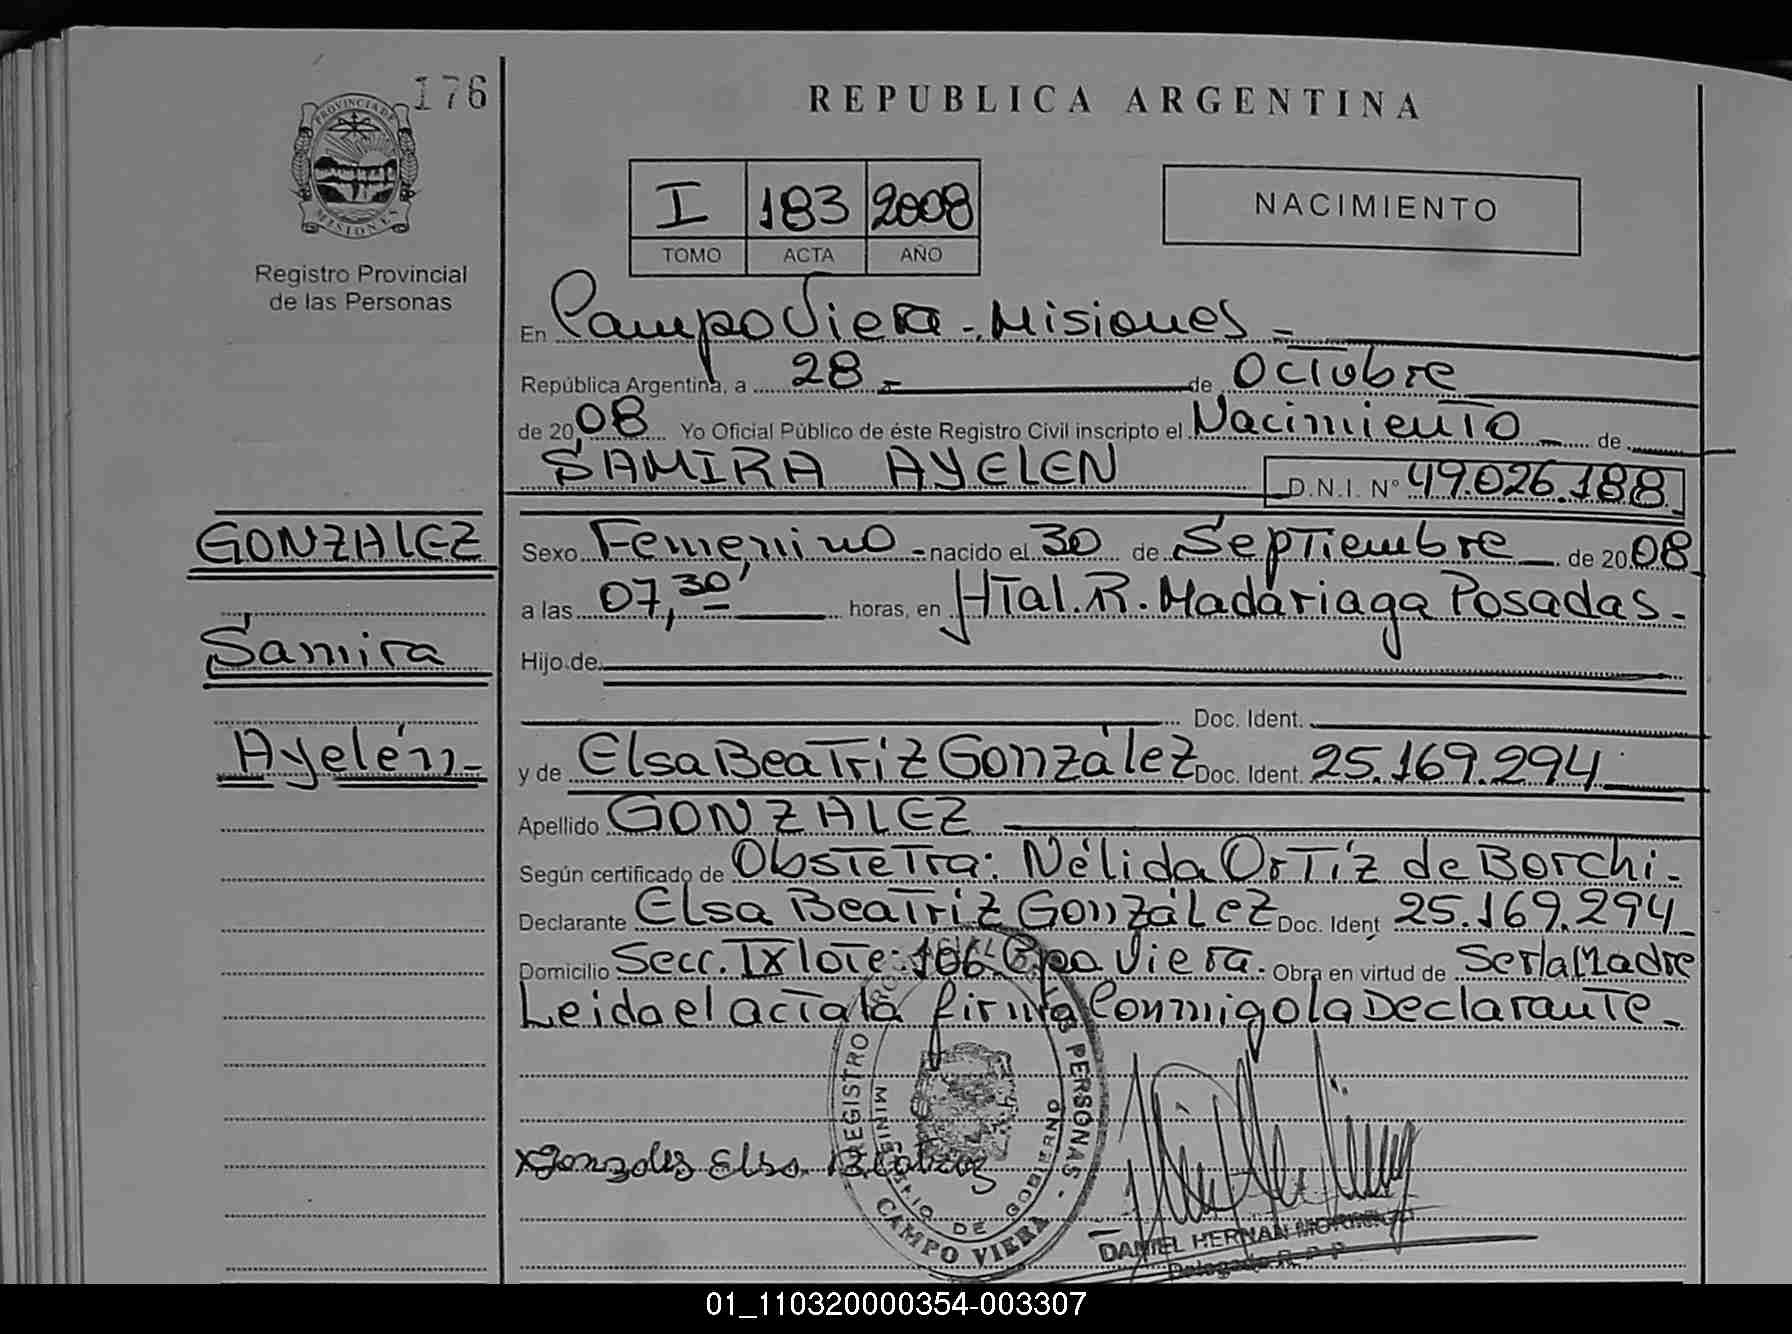 176
PROVINCIA DE
MISIONES
Registro Provincial
de las Personas
REPUBLICA ARGENTINA
I 183 2008
TOMO ACTA AÑO
NACIMIENTO
En Campo Viera - Misiones -
República Argentina, a 28 - de Octubre
de 2008 Yo Oficial Público de éste Registro Civil inscripto el Nacimiento - de
SAMIRA AYELEN D.N.I. N° 49.026.188
GONZALEZ
Samira
Ayelén -
Sexo Femenino - nacido el 30 de Septiembre de 2008
a las 07,30' horas, en Htal. R. Madariaga Posadas -
Hijo de
Doc. Ident.
y de Elsa Beatriz González Doc. Ident. 25.169.294
Apellido GONZALEZ
Según certificado de Obstetra: Nélida Ortíz de Borchi -
Declarante Elsa Beatriz González Doc. Ident 25.169.294
Domicilio Secc. IX lote: 106 Cpo Viera. Obra en virtud de Ser la Madre
Leida el acta la firma Conmigo la Declarante -
REGISTRO PERSONAS -
MINISTERIO DE GOBIERNO
CAMPO VIERA
x Gonzalez Elsa Beatriz
DANIEL HERNAN
Delegado R. P. P.
01_110320000354-003307